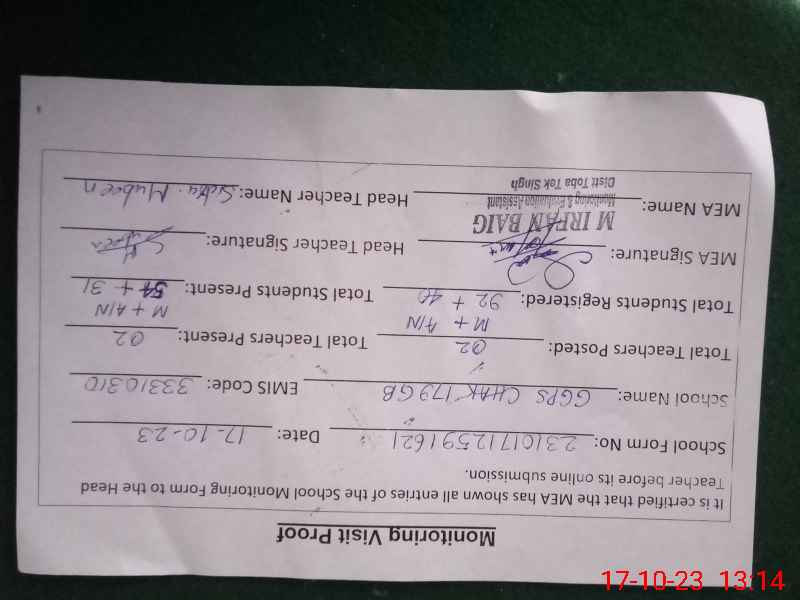 Monitoring Visit Proof
It is certified that the MEA has shown all entries of the School Monitoring Form to the Head
Teacher before its online submission.
School Form No: 231017112591621 Date: 17-10-23
School Name: GGPS CHAK 179 GB EMIS Code: 33310310
Total Teachers Posted: 02 Total Teachers Present: 02
M + A/N M + A/N
Total Students Registered: 92 + 40 Total Students Present: 54 + 31
MEA Signature: Head Teacher Signature:
M IRFAN BAIG
Monitoring & Evaluation Assistant
MEA Name: Head Teacher Name: Sidra Mubeen
Distt Toba Tek Singh
17-10-23 13:14